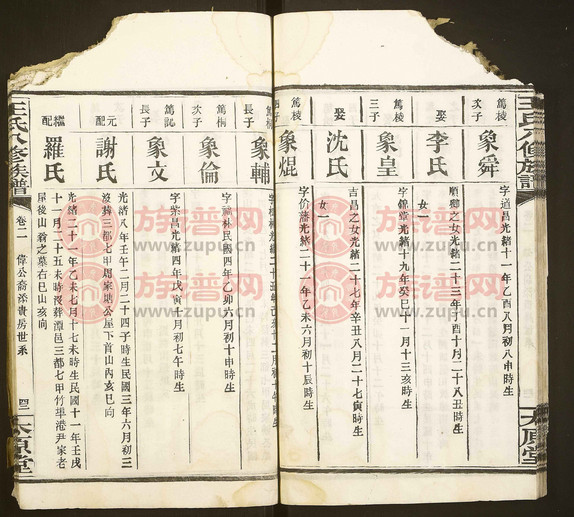 王氏八修族譜
太原堂
篤棱
次子
象舜
字道昌光緒十一年乙酉八月初八申時生
娶
李氏
順卿之女光緒二十三年丁酉十月二十八丑時生
女一
篤棱
三子
象皇
字錦堂光緒十九年癸巳十一月十三亥時生
娶
沈氏
吉昌之女光緒二十七年辛丑八月二十七寅時生
女一
篤棱
四子
象焜
字价藩光緒二十一年乙未六月初十辰時生
長子
象輔
篤桐
次子
象倫
民國四年乙卯六月初十申時生
篤記
長子
象文
字紫昌光緒四年戊寅十月初七午時生
元配
謝氏
光緒八年壬午二月二十四子時生民國三年六月初三
沒葬三都七甲周家塘公屋下首山內亥巳向
繼配
羅氏
光緒二十一年乙未七月十七未時生民國十一年壬戌
十一月二十五未時沒葬潭邑三都七甲竹埠港尹家老
屋後山翁字墓右巳山亥向
王氏八修族譜
卷二
偉公裔添貴房世系
太原堂
www.zupu.cn
族譜网